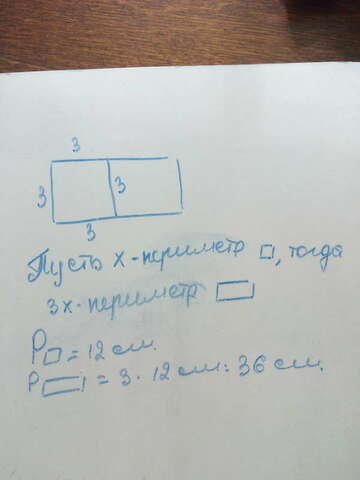 3
3 3
3
Пусть x - периметр □, тогда
3x - периметр ▭
P□ = 12 см.
P▭ = 3 · 12 см = 36 см.